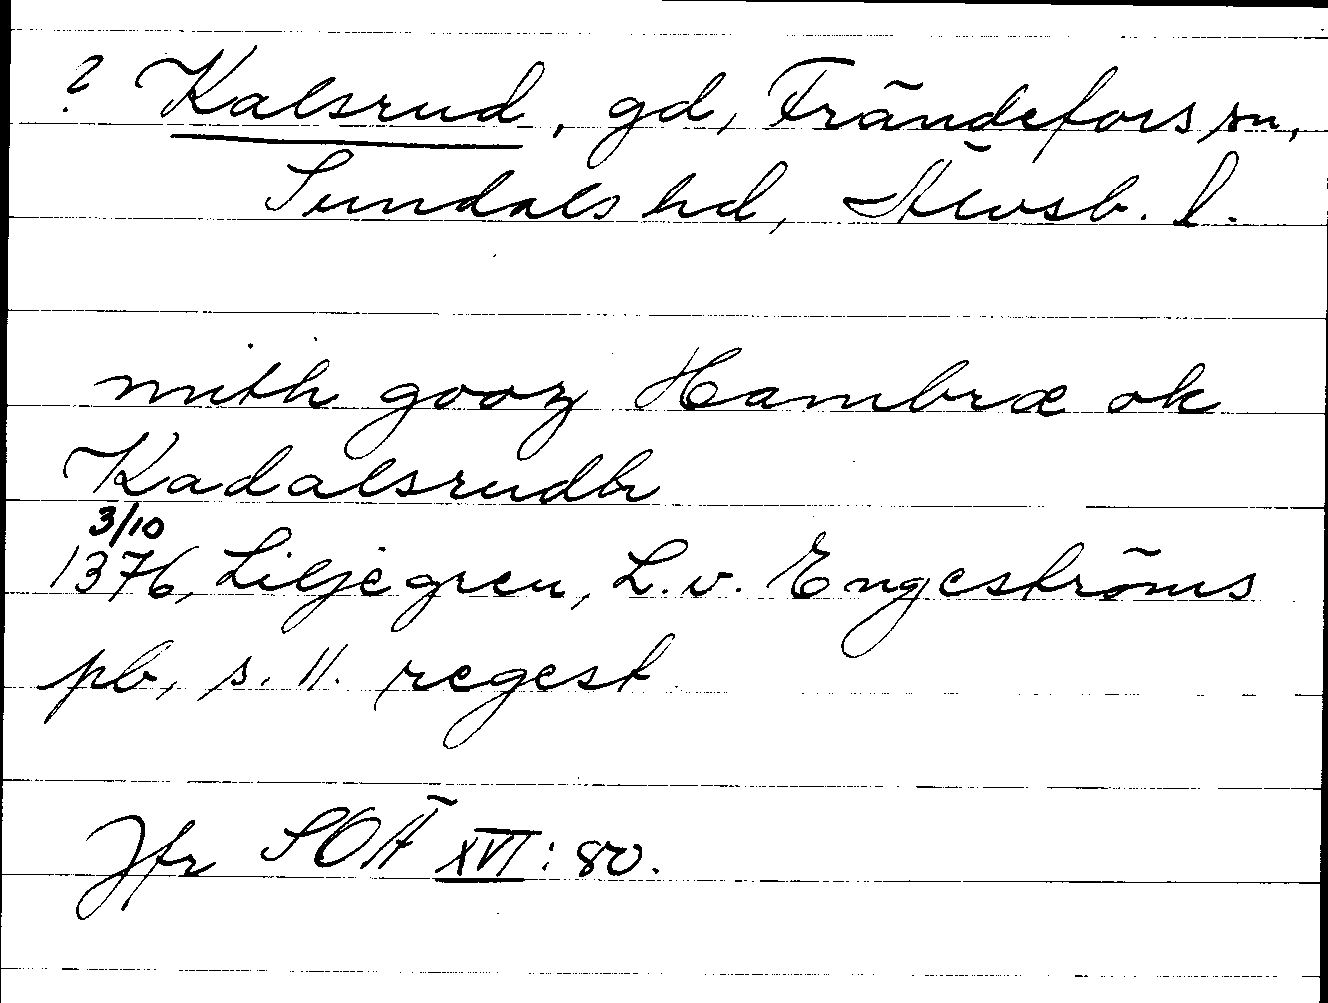 ? Kalsrud, gd, Frändefors sn,
Sundals hd, Älvsb. l.
mith gooz Hambræ ok
Kadalsrudh
3/10
1376, Liljegren, L. v. Engeströms
pb, s. 11. regest
Jfr SOÄ XVI : 80.